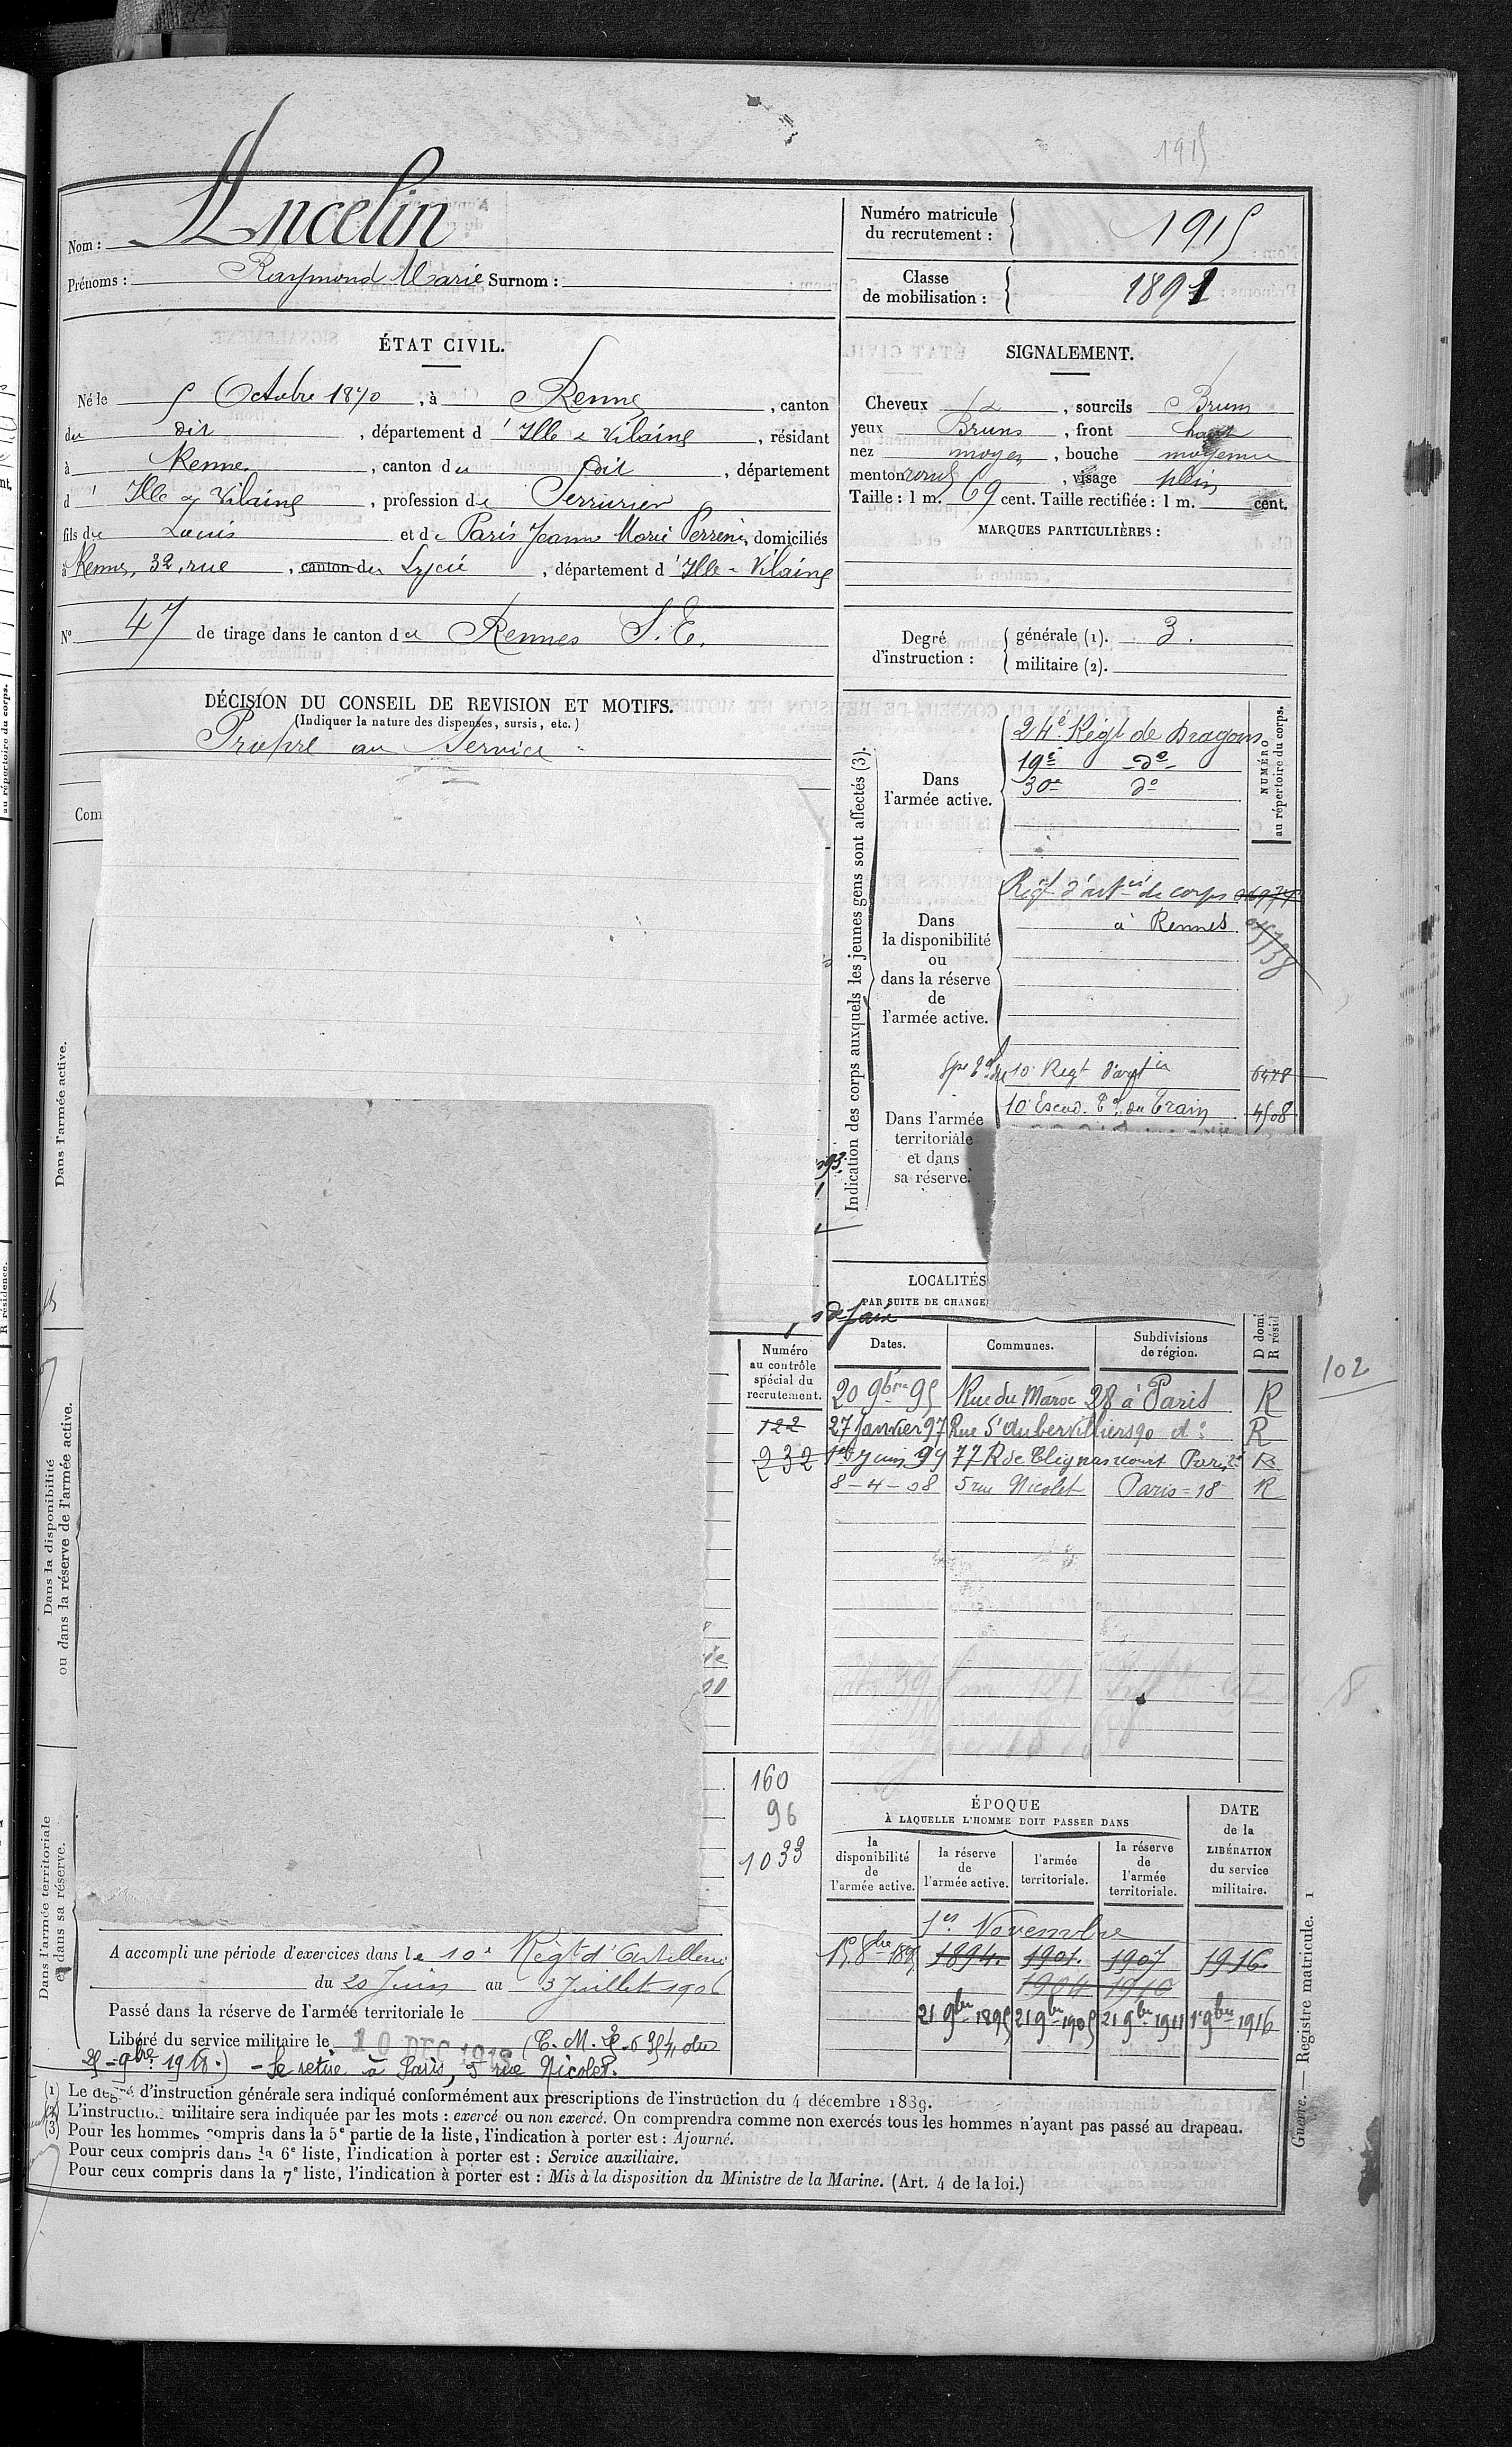 1915
Nom : Ancelin
Prénoms : Raymond Marie Surnom :
Numéro matricule
du recrutement : 1915
Classe
de mobilisation : 1891
ÉTAT CIVIL.
Né le 5 Octobre 1870, à Rennes, canton
du dit, département d'Ille & Vilaine, résidant
à Rennes, canton du dit, département
d'Ille & Vilaine, profession de Serrurier
fils de Louis et de Paris Jeanne Marie Perrine, domiciliés
à Rennes, 32, rue canton du Lycée, département d'Ille-Vilaine
N° 47 de tirage dans le canton de Rennes S. E.
SIGNALEMENT.
Cheveux, sourcils Bruns
yeux Bruns, front haut
nez moyen, bouche moyenne
menton rond, visage plein
Taille : 1 m. 69 cent. Taille rectifiée : 1 m. cent.
MARQUES PARTICULIÈRES :
Degré
d'instruction :
générale (1). 3.
militaire (2).
DÉCISION DU CONSEIL DE REVISION ET MOTIFS.
(Indiquer la nature des dispenses, sursis, etc.)
Propre au Service
Com
Indication des corps auxquels les jeunes gens sont affectés (3).
NUMÉRO
au répertoire du corps.
Dans
l'armée active.
24e Régt de Dragons
19e do
30e do
Dans
la disponibilité
ou
dans la réserve
de
l'armée active.
Régt d'artie de corps
à Rennes
Dans l'armée
territoriale
et dans
sa réserve.
10e Regt d'artie 6478
10e Escad. Tal du Train 4508
Dans l'armée active.
Dans la disponibilité
ou dans la réserve de l'armée active.
Dans l'armée territoriale
et dans sa réserve.
LOCALITÉS
PAR SUITE DE CHANGE
Dates.
Communes.
Subdivisions
de région.
D domi
R résid
20 9bre 95 Rue du Maroc 28 à Paris R
27 Janvier 97 Rue d'Aubervilliers 90 do R
1er Juin 99 77 R de Clignancourt Paris R
8-4-08 5 rue Nicolet Paris=18 R
102
Numéro
au contrôle
spécial du
recrutement.
122
232
160
96
1033
ÉPOQUE
À LAQUELLE L'HOMME DOIT PASSER DANS
la
disponibilité
de
l'armée active.
la réserve
de
l'armée active.
l'armée
territoriale.
la réserve
de
l'armée
territoriale.
DATE
de la
LIBÉRATION
du service
militaire.
1er Novembre
1894. 1901. 1907 1916.
1904 1910
21 9bre 1895 21 9bre 1905 21 9bre 1911 1er 9bre 1916
A accompli une période d'exercices dans le 10e Régt d'Artillerie
du 20 Juin au 3 Juillet 1906
Passé dans la réserve de l'armée territoriale le
Libéré du service militaire le 10 DEC 1918 (C. M. du
25-9bre 1918.) - Se retire à Paris, 5 rue Nicolet.
(1) Le degré d'instruction générale sera indiqué conformément aux prescriptions de l'instruction du 4 décembre 1889.
(2) L'instruction militaire sera indiquée par les mots : exercé ou non exercé. On comprendra comme non exercés tous les hommes n'ayant pas passé au drapeau.
(3) Pour les hommes compris dans la 5e partie de la liste, l'indication à porter est : Ajourné.
Pour ceux compris dans la 6e liste, l'indication à porter est : Service auxiliaire.
Pour ceux compris dans la 7e liste, l'indication à porter est : Mis à la disposition du Ministre de la Marine. (Art. 4 de la loi.)
Guerre. — Registre matricule. 1